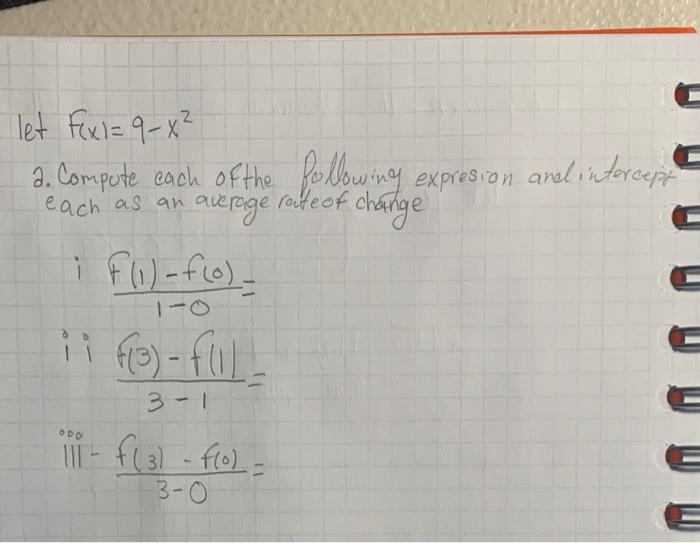 let F(x)= 9-x²
a. Compute each of the following expresion and intercept
each as an average rate of change
i f(1)-f(0) =
1-0
ii f(3)-f(1) =
3-1
iii- f(3) - f(0) =
3-0